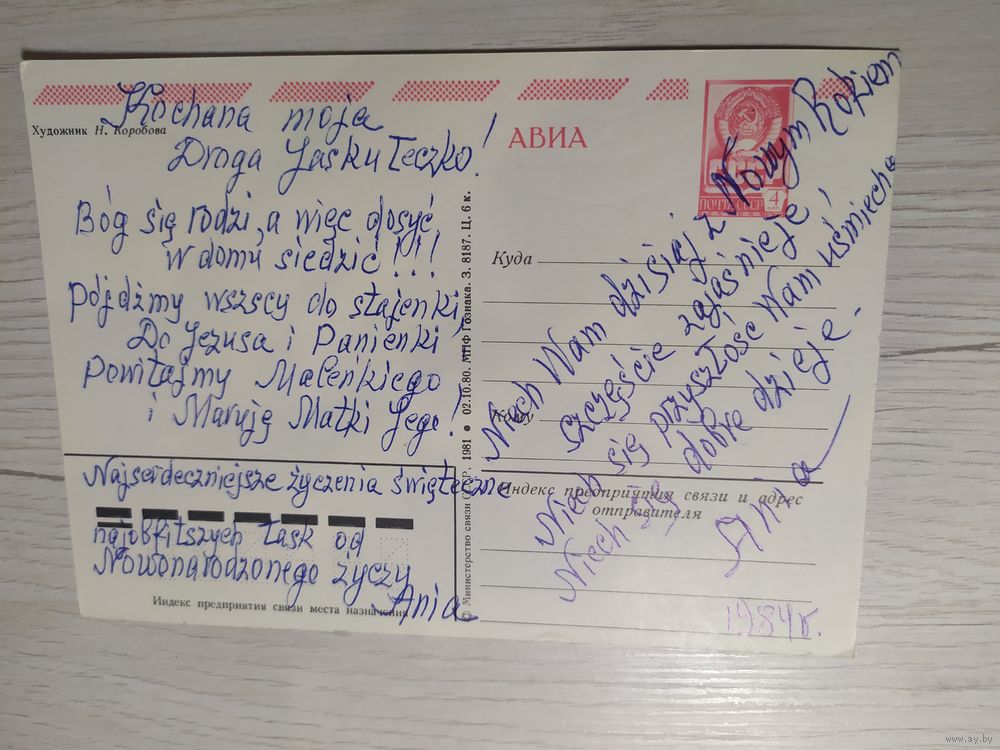 Художник Н. Коробова
Kochana moja
Droga Jaskułeczko!
Bóg się rodzi, a więc dosyć
w domu siedzić!!!
Pójdźmy wszscy do stajenki,
Do Jezusa i Panienki
Powitajmy Maleńkiego
i Maryję Matki Jego!
Najserdeczniejsze życzenia świąteczne
najobfitszych łask od
Nowonarodzonego życzy
Ania
Индекс предприятия связи места назначения
© Министерство связи СССР, 1981 ● 02.10.80. МПФ Гознака. З. 8187. Ц. 6 к.
АВИА
ПОЧТА СССР 4
Куда
Кому
Индекс предприятия связи и адрес
отправителя
Niech Wam dzisiaj z Nowym Rokiem
szczęście zajaśnieje,
Niech się przyszłość Wam uśmiecha
Niech się dobrze dzieje.
Ania
1984г.
www.ay.by